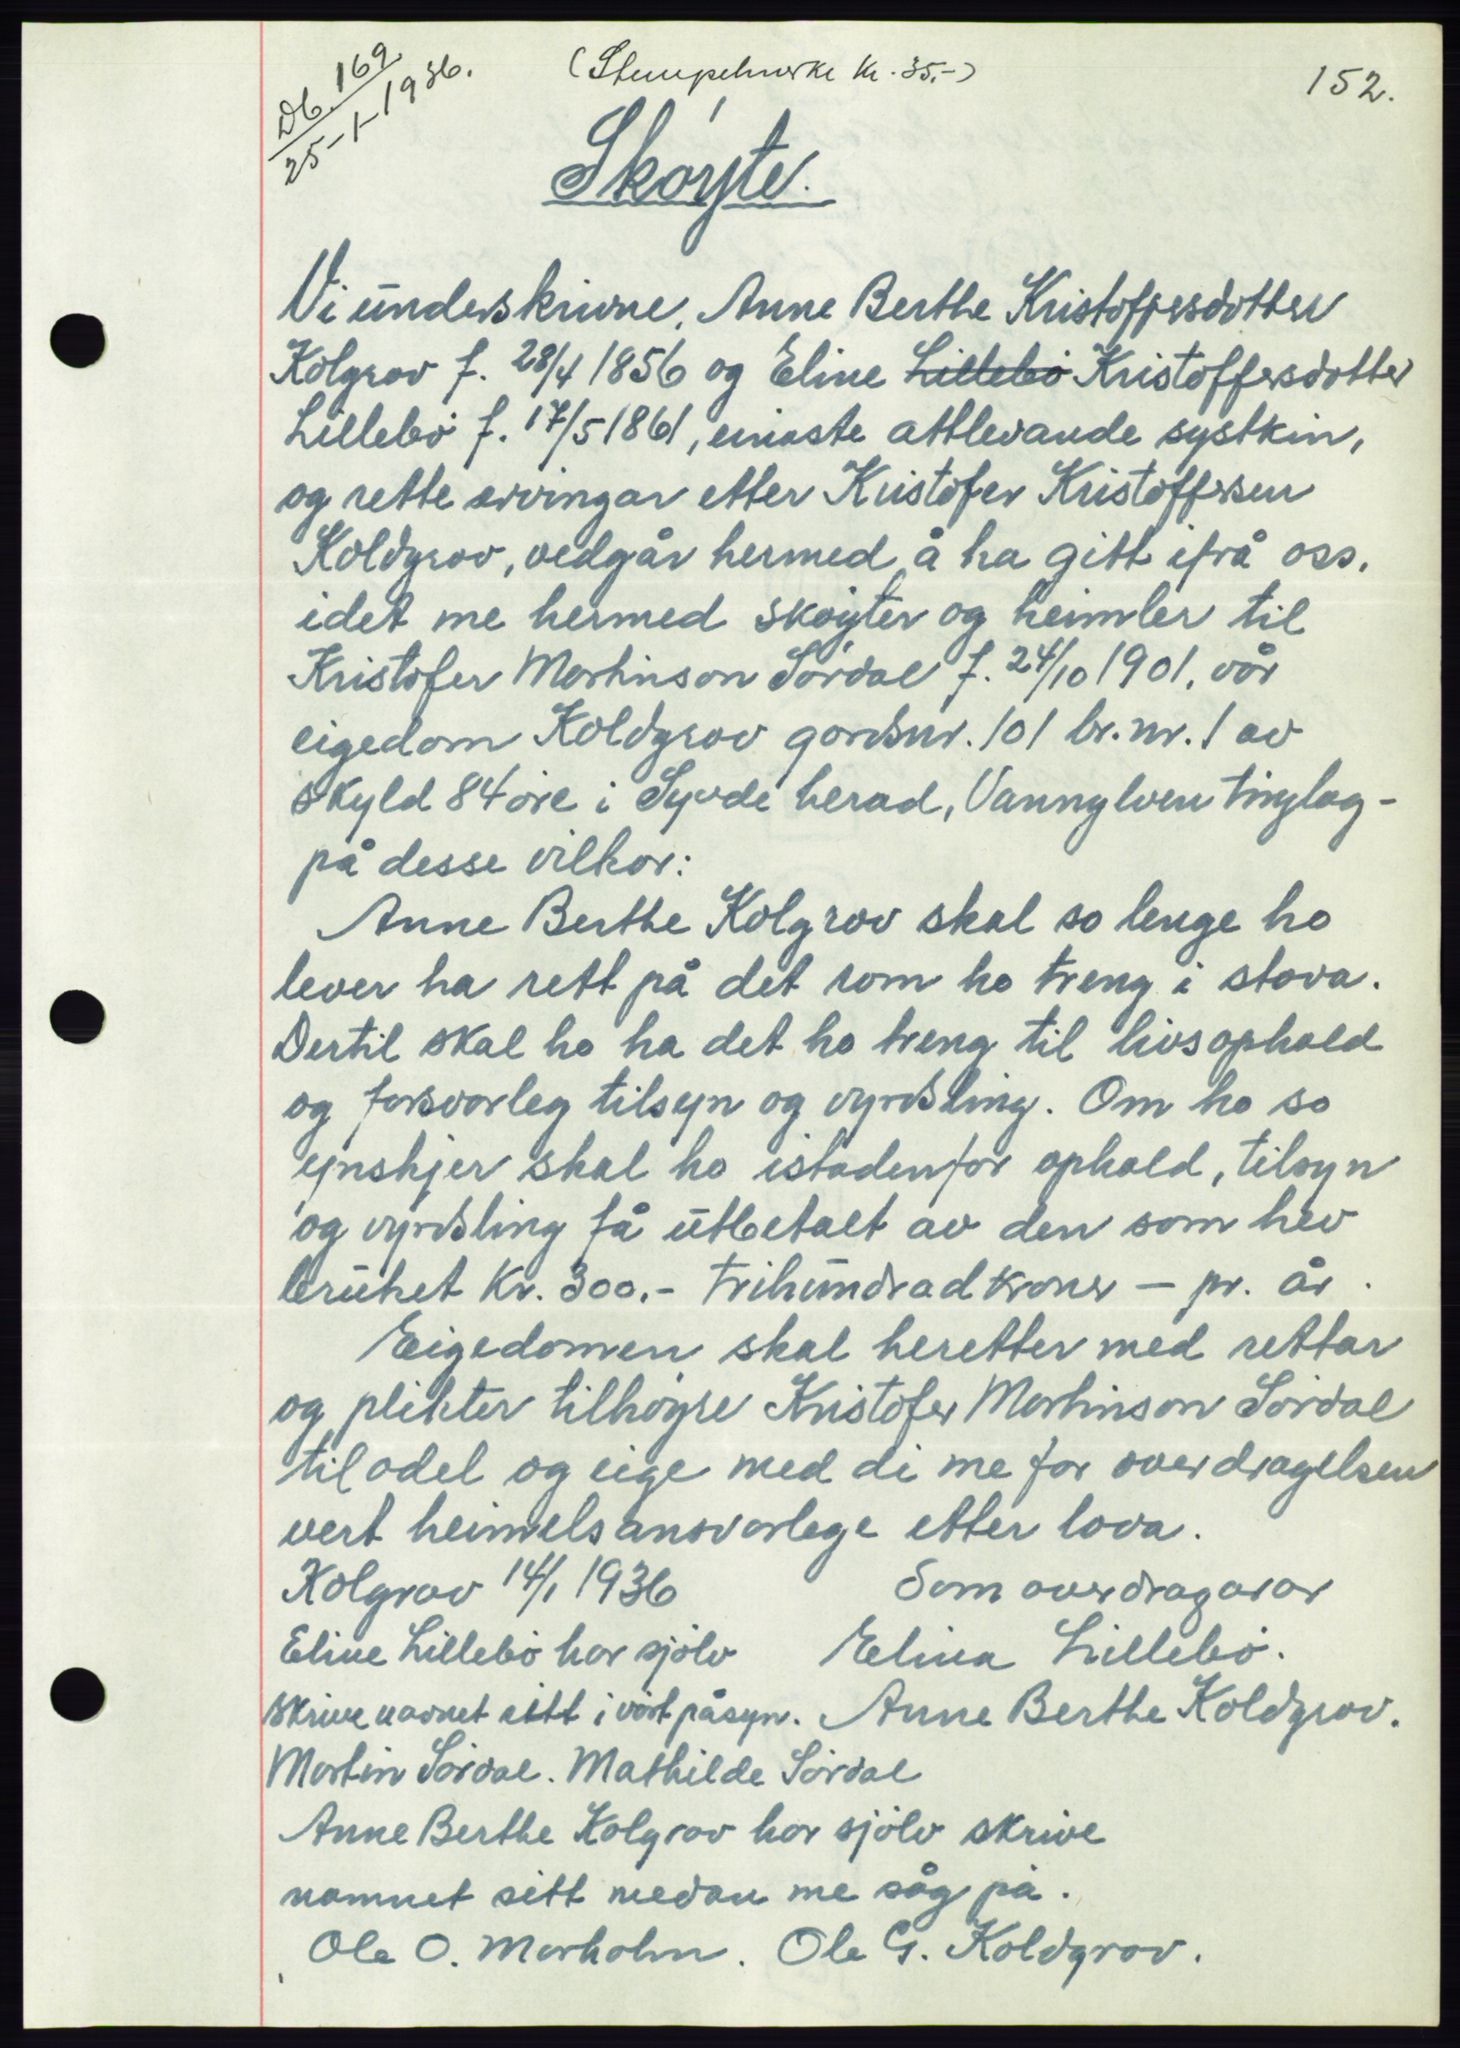 Db. 169
25-1-1936.
(Stempelmerke kr. 35.-)
152.
Skøyte.
Vi underskrivne, Anne Berthe Kristoffersdotter
Kolgrov f. 28/4 1856 og Eline Lillebø Kristoffersdotter
Lillebø f. 17/5 1861, einaste attlevande systkin,
og rette arvingar etter Kristofer Kristoffersen
Koldgrov, vedgår hermed å ha gitt ifrå oss,
idet me hermed skøyter og heimler til
Kristofer Martinson Sørdal f. 24/10 1901, vår
eigedom Koldgrov gardsnr. 101 br. nr. 1 av
skyld 84 øre i Syvde herad, Vannylven tinglag -
på desse vilkor:
Anne Berthe Kolgrov skal so lenge ho
lever ha rett på det rom ho treng i stova.
Dertil skal ho ha det ho treng til livsophald
og forsvarleg tilsyn og vyrdsling. Om ho so
ynskjer skal ho istadenfor ophald, tilsyn
og vyrdsling få utbetalt av den som hev
bruket Kr. 300.- trihundrad kroner - pr. år.
Eigedomen skal heretter med rettar
og plikter tilhøyre Kristofer Martinson Sørdal
til odel og eige med di me for overdragelsen
vert heimelsansvarlege etter lova.
Kolgrov 14/1 1936 Som overdragarar
Eline Lillebø har sjølv Elina Lillebø.
skrive navnet sitt i vårt påsyn. Anne Berthe Koldgrov.
Martin Sørdal. Mathilde Sørdal
Anne Berthe Kolgrov har sjølv skrive
namnet sitt medan me såg på.
Ole O. Marholm. Ole G. Koldgrov.